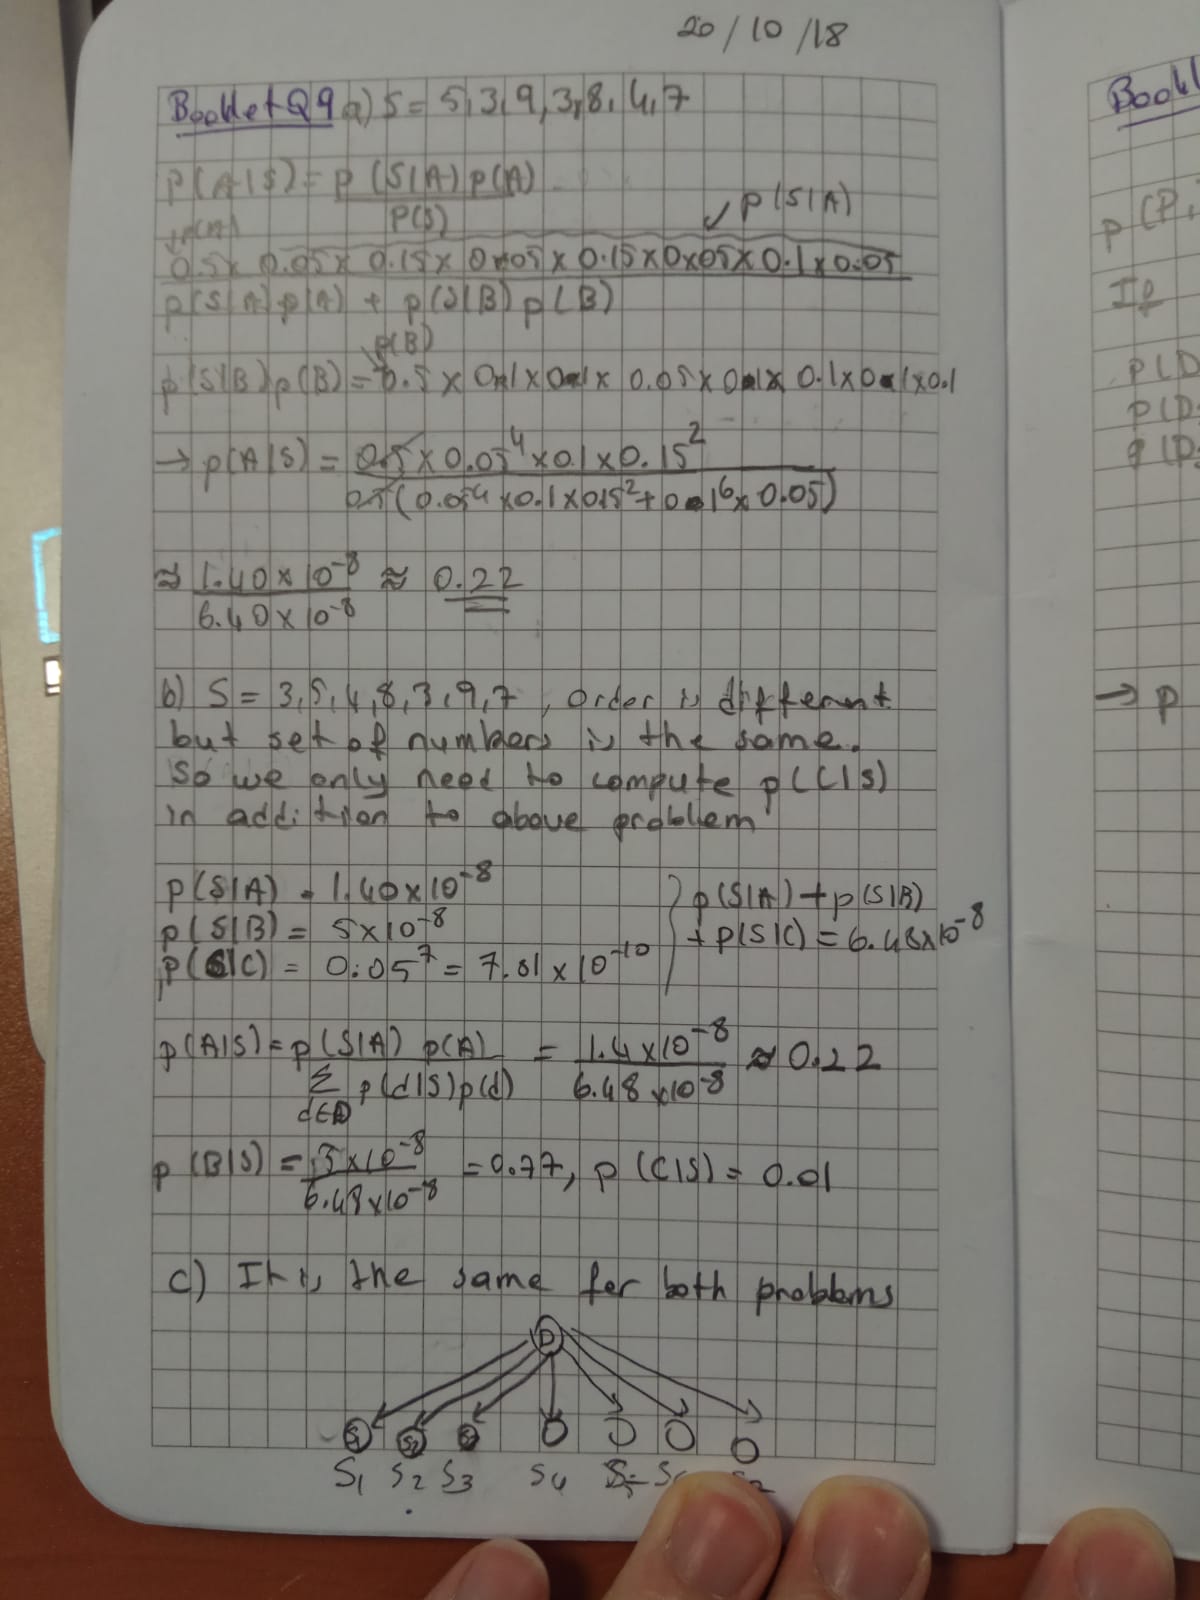 20/10/18
Booklet Q9 a) S = 5,3,9,3,8,4,7
p(A|S) = p(S|A) p(A)
P(S)
p(A)
✓ p(S|A)
0.5 x 0.05 x 0.15 x 0.05 x 0.15 x 0.05 x 0.1 x 0.05
p(S|A) p(A) + p(S|B) p(B)
p(B)
p(S|B) p(B) = 0.5 x 0.1 x 0.1 x 0.05 x 0.1 x 0.1 x 0.1 x 0.1
→ p(A|S) = 0.5 x 0.05⁴ x 0.1 x 0.15²
0.5 (0.05⁴ x 0.1 x 0.15² + 0.1⁶ x 0.05)
≈ 1.40 x 10⁻⁸ ≈ 0.22
6.40 x 10⁻⁸
b) S = 3,5,4,8,3,9,7 , order is different
but set of numbers is the same.
So we only need to compute p(C|S)
in addition to above problem
p(S|A) = 1.40x10⁻⁸
p(S|B) = 5x10⁻⁸
p(S|C) = 0.05⁷ = 7.81 x 10⁻¹⁰
p(S|A) + p(S|B)
+ p(S|C) = 6.48x10⁻⁸
p(A|S) = p(S|A) p(A) = 1.4x10⁻⁸ ≈ 0.22
Σ p(d|S)p(d) 6.48 x10⁻⁸
d∈D
p(B|S) = 5x10⁻⁸ = 0.77, p(C|S) = 0.01
6.48x10⁻⁸
c) It is the same for both problems
D
S1 S2
S1 S2 S3 S4
Bookl
p(P,
If
p(D
p(D=
p(D=
→ p